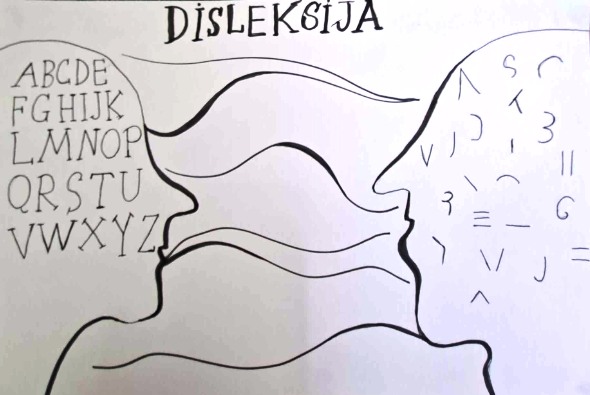 DISLEKSIJA
ABCDE
FGHIJK
LMNOP
QRSTU
VWXYZ